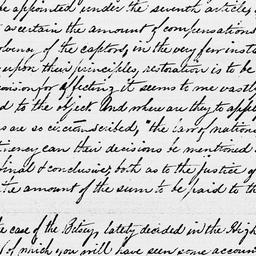 be appointed under the seventh articles
ascertain the amount of compensations
olvency of the captors, in the very few inst
upon their principles, restoration is to be
rovision for effecting it seems to me vastly
d to the object and where are they to appl
s are so circumscribed, "the law of nation
tiency can their decisions be mentioned
final & conclusive, both as to the justice of
the amount of the sum to be paid to th
he case of the Betsey, lately decided in the High
of which you will have seen some accoun